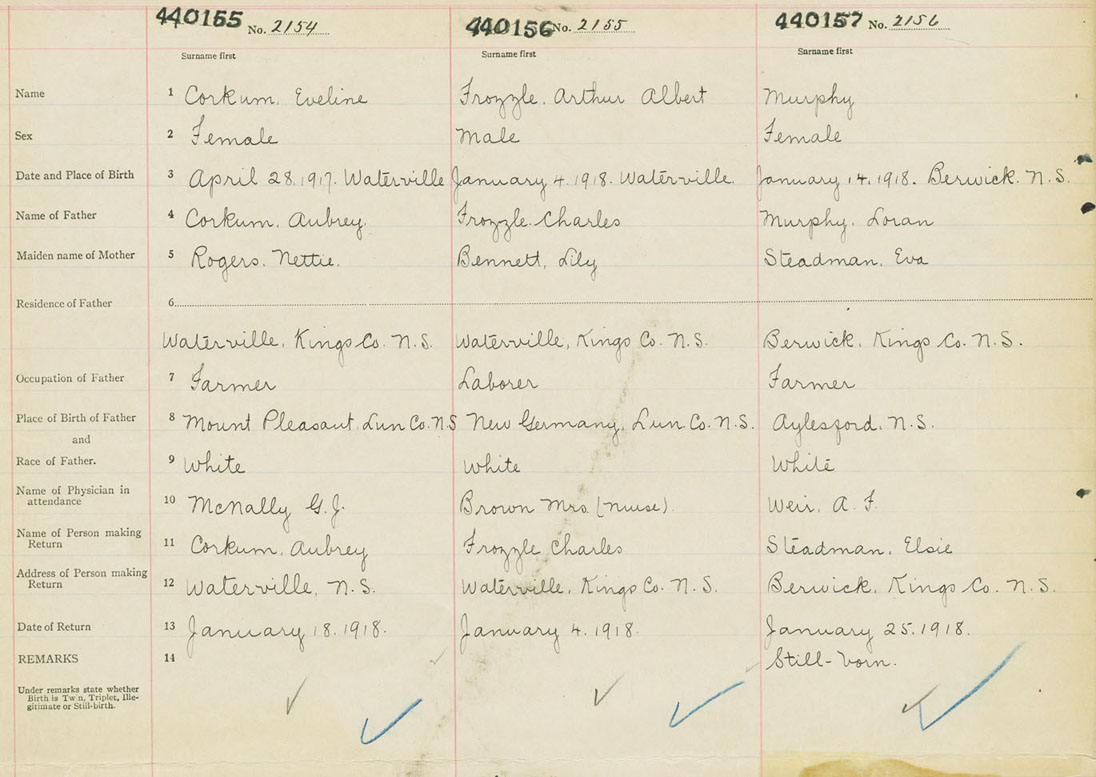 440155 No. 2154 440156 No. 2155 440157 No. 2156
Surname first Surname first Surname first
Name 1 Corkum, Eveline Frozzle, Arthur Albert Murphy
Sex 2 Female Male Female
Date and Place of Birth 3 April 28, 1917. Waterville January 4, 1918. Waterville. January 14, 1918. Berwick. N.S.
Name of Father 4 Corkum, Aubrey. Frozzle, Charles Murphy, Loran
Maiden name of Mother 5 Rogers, Nettie. Bennett, Lily Steadman, Eva
Residence of Father 6
Waterville, Kings Co. N.S. Waterville, Kings Co. N.S. Berwick, Kings Co. N.S.
Occupation of Father 7 Farmer Laborer Farmer
Place of Birth of Father 8 Mount Pleasant, Lun Co. N.S New Germany, Lun Co. N.S. Aylesford, N.S.
and
Race of Father. 9 White White White
Name of Physician in
attendance 10 McNally G.J. Brown Mrs (nurse). Weir, A. F.
Name of Person making
Return 11 Corkum, Aubrey Frozzle Charles Steadman, Elsie
Address of Person making
Return 12 Waterville, N.S. Waterville, Kings Co. N.S. Berwick, Kings Co. N.S.
Date of Return 13 January 18, 1918. January 4, 1918. January 25, 1918.
REMARKS 14 Still-born.
Under remarks state whether
Birth is Twin, Triplet, Ille-
gitimate or Still-birth.